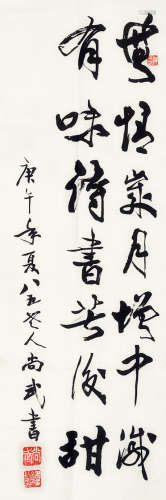 无情岁月增中减
有味诗书苦后甜
庚午年夏八五老人尚武书